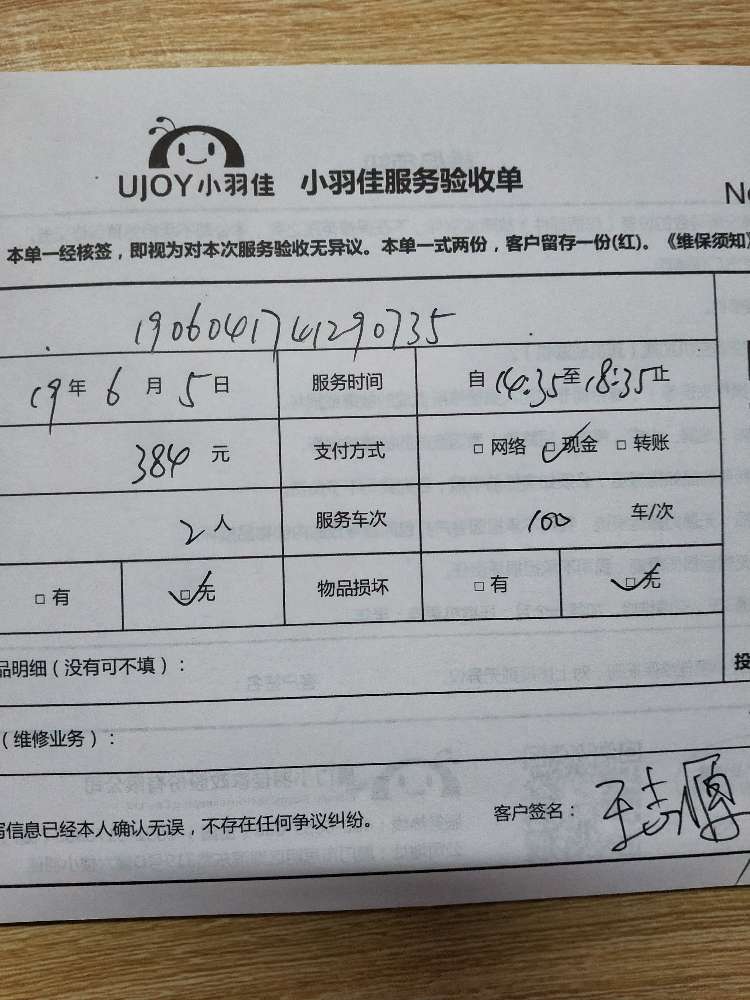 UJOY小羽佳 小羽佳服务验收单
No
本单一经核签，即视为对本次服务验收无异议。本单一式两份，客户留存一份(红)。《维保须知》
190604174290735
19年6月5日 服务时间 自14:35至18:35止
384元 支付方式 □ 网络 □ 现金 □ 转账
2人 服务车次 100 车/次
□ 有 □ 无 物品损坏 □ 有 □ 无
品明细（没有可不填）： 投
（维修业务）：
写信息已经本人确认无误，不存在任何争议纠纷。 客户签名：